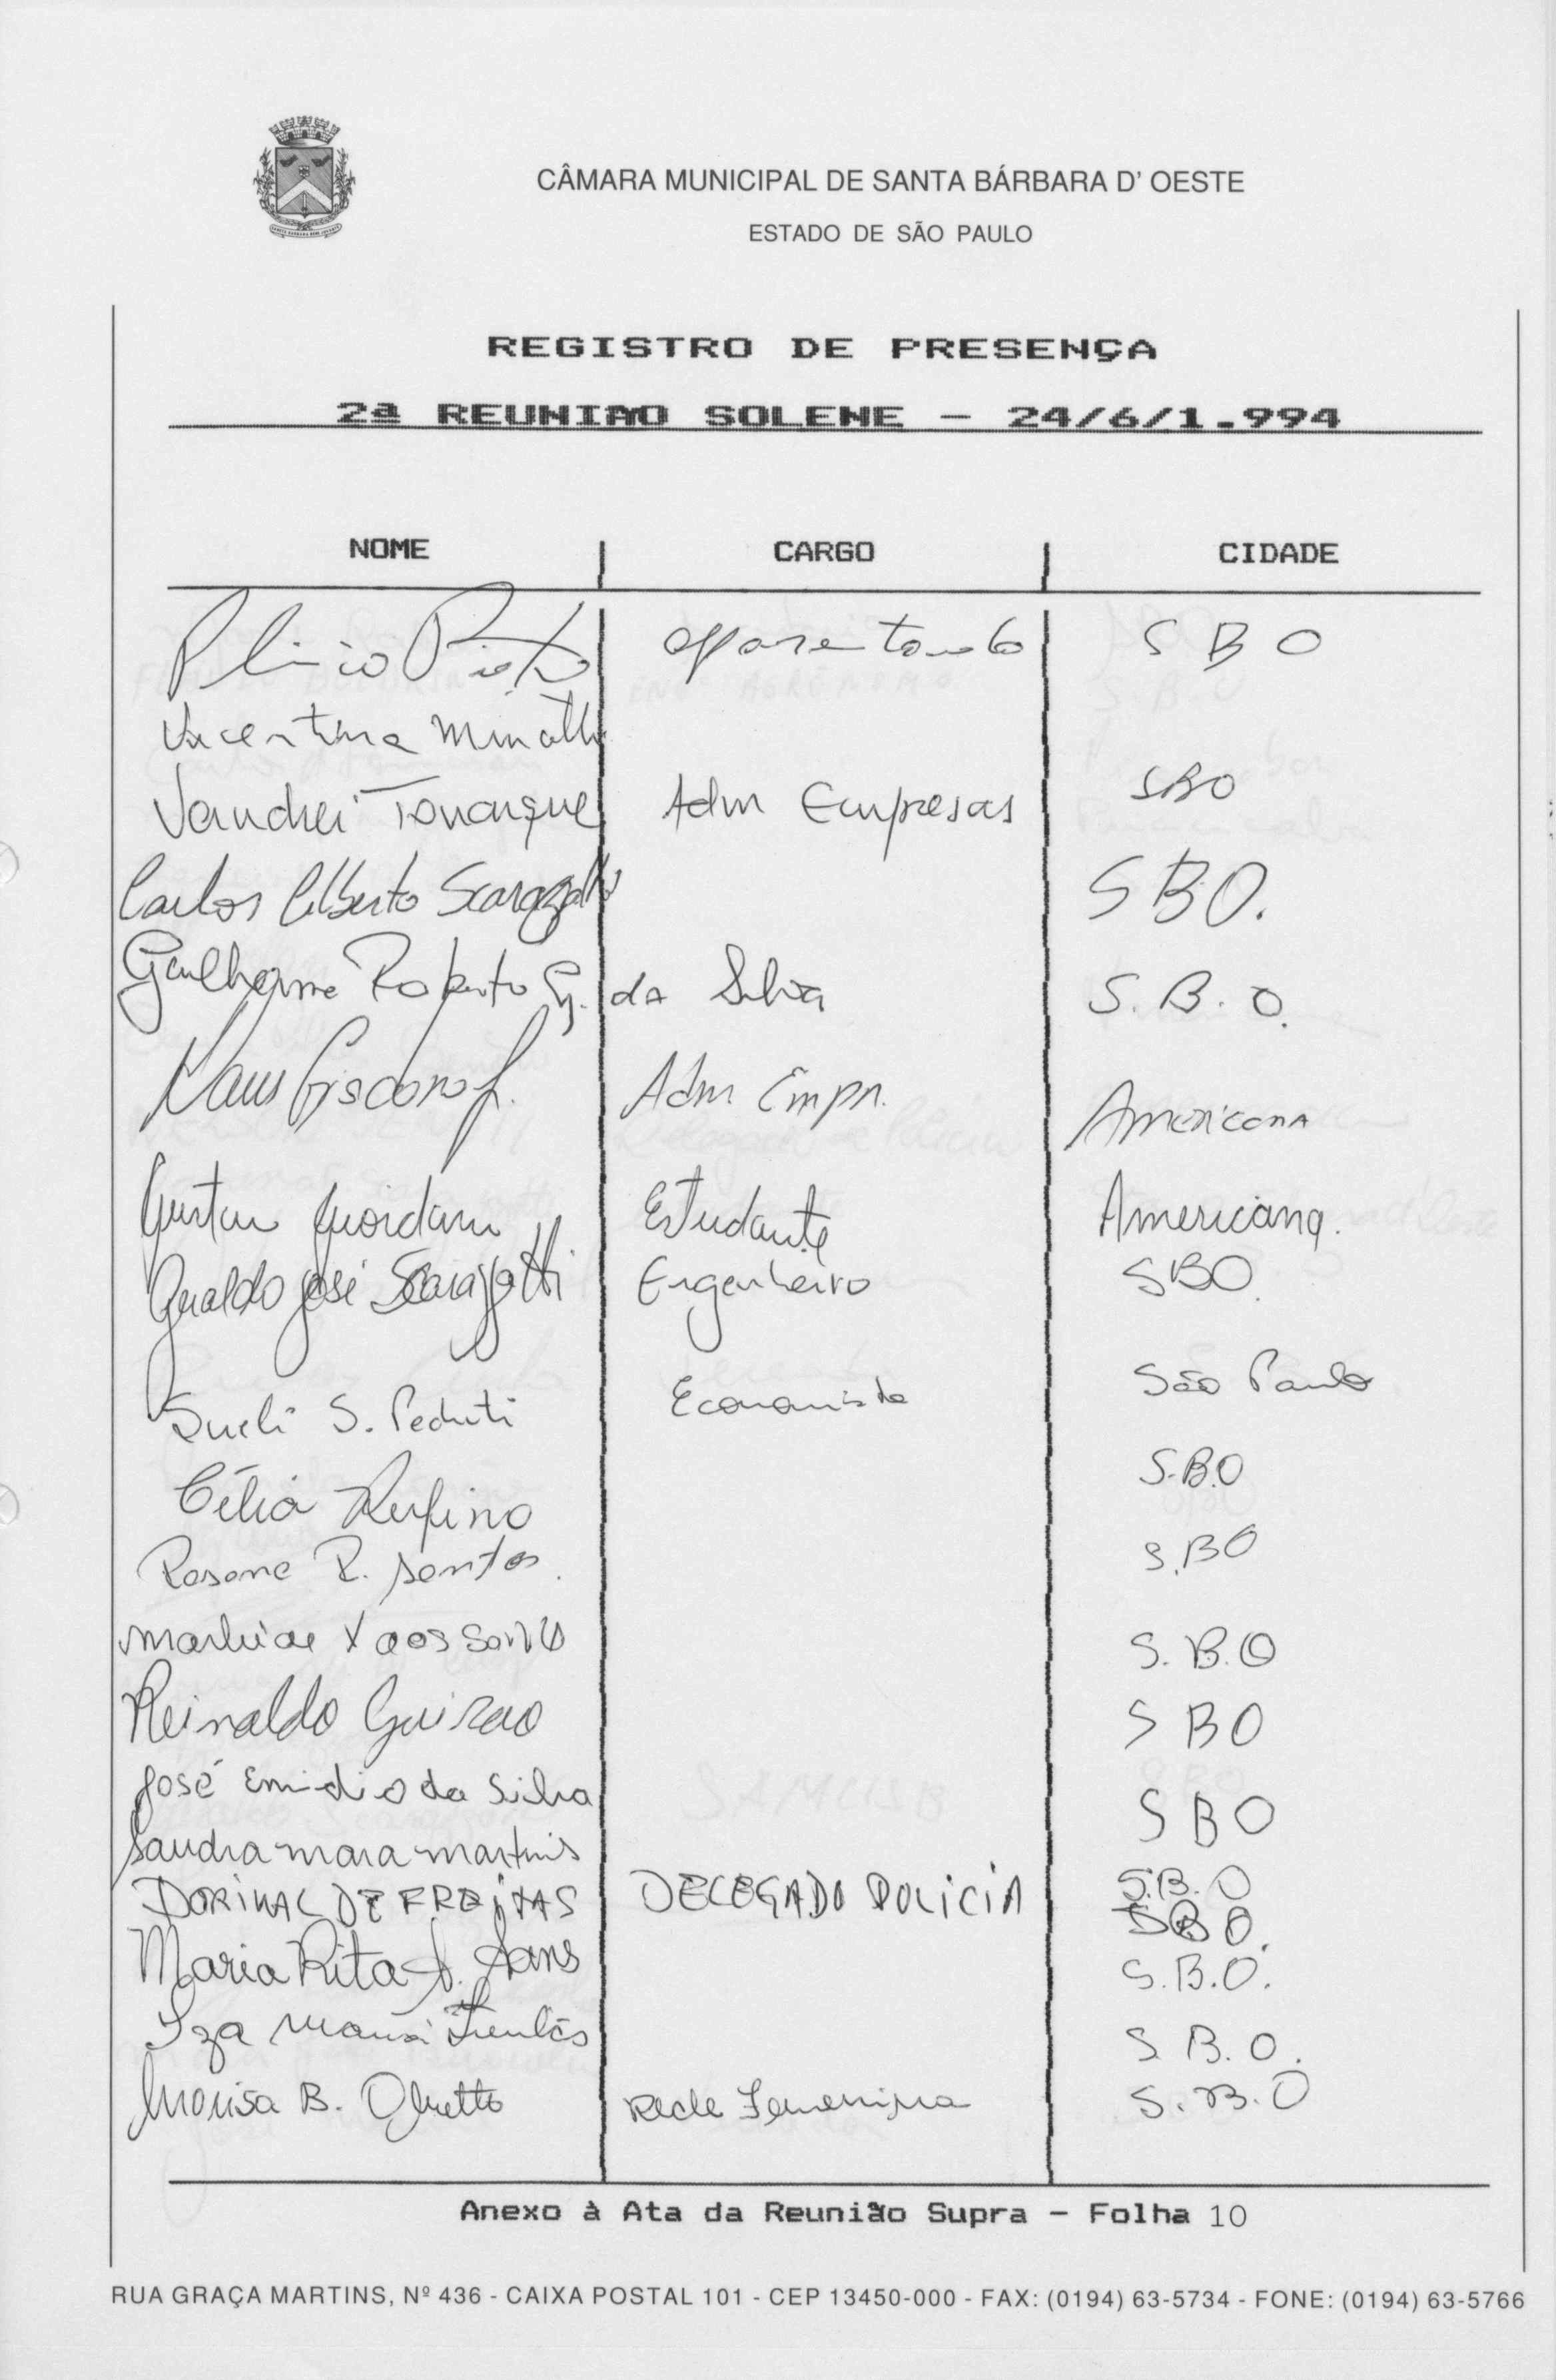 CÂMARA MUNICIPAL DE SANTA BÁRBARA D' OESTE
ESTADO DE SÃO PAULO
REGISTRO DE PRESENÇA
2ª REUNIÃO SOLENE - 24/6/1.994
NOME CARGO CIDADE
Plinio S B O
Vicentina
Vandrei Adm Empresas SBO
Carlos Alberto SBO.
Guilherme Roberto G. da Silva S. B. O.
Adm Empr. Americana
Estudante Americana.
Geraldo José Scaragatti Engenheiro SBO.
Sueli S. Peduti Economista São Paulo
Célia Rufino S.B.O
Rosane R. Santos. S.BO
S. B. O
Reinaldo Guirao S B O
José Emidio da Silva S B O
Sandra mara martins S.B. O
DORIVAL DE FREITAS DELEGADO POLICIA SBO.
Maria Rita S.B.O.
Iza Maria S B. O.
B. Rede Feminina S. B. O
Anexo à Ata da Reunião Supra - Folha 10
RUA GRAÇA MARTINS, Nº 436 - CAIXA POSTAL 101 - CEP 13450-000 - FAX: (0194) 63-5734 - FONE: (0194) 63-5766